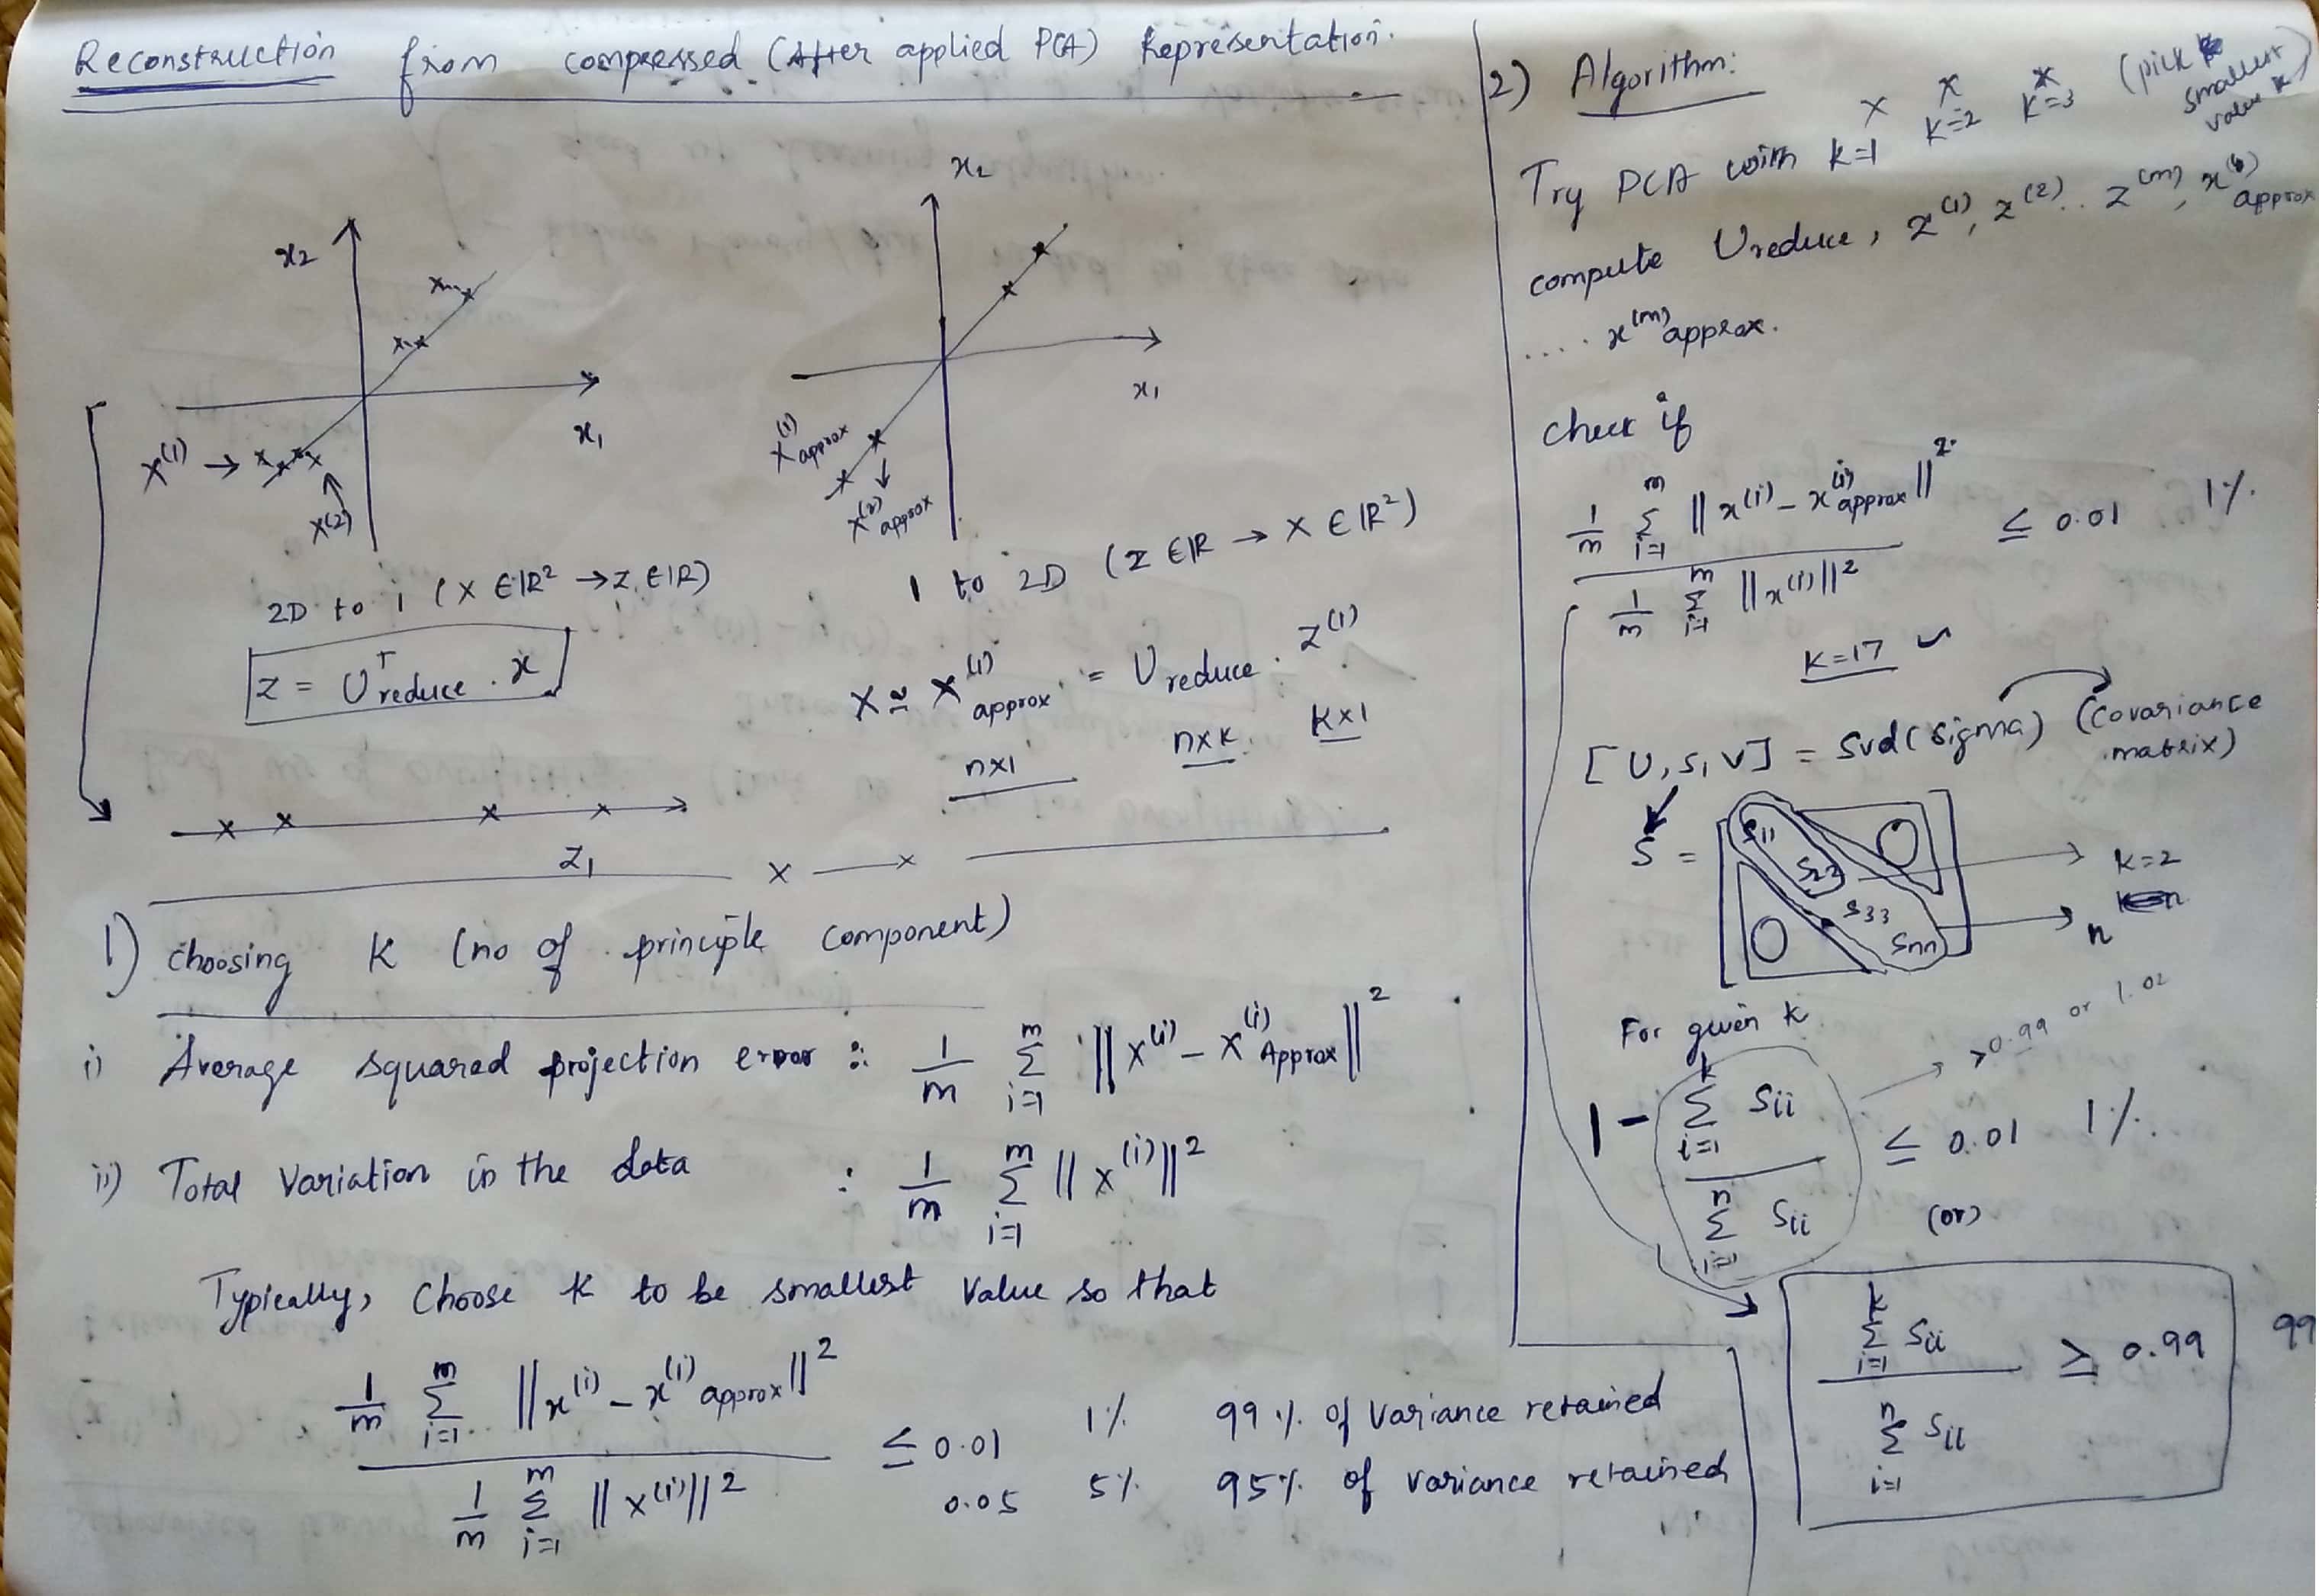 Reconstruction from compressed (After applied PCA) Representation.
x2
x1
X(1) →
X(2)
2D to 1 (X ∈ IR² → Z ∈ IR)
z = Uᵀreduce . x
z1
x2
x1
X(1) approx
X(2) approx
1 to 2D (Z ∈ IR → X ∈ IR²)
X ≅ X(1) approx = U reduce . Z(1)
n×1 n×k k×1
x — x
1) choosing K (no of principle component)
i) Average squared projection error : 1/m Σ i=1 m || X(i) - X(i) Approx ||²
ii) Total Variation in the data : 1/m Σ i=1 m || X(i) ||²
Typically, choose K to be smallest value so that
1/m Σ i=1 m || x(i) - x(i) approx ||²
1/m Σ i=1 m || X(i) ||²
≤ 0.01 1% 99% of variance retained
0.05 5% 95% of variance retained
2) Algorithm:
Try PCA with k=1 k=2 k=3 (pick smallest value k)
compute U reduce, z(1), z(2).. z(m), x(1) approx
.... x(m) approx.
check if
1/m Σ i=1 m || x(i) - x(i) approx ||²
1/m Σ i=1 m || x(i) ||²
≤ 0.01 1%
K=17
[U, S, V] = Svd(Sigma) (Covariance matrix)
S = S11 S22 S33 Snn O O
K=2
n
For given k
1 - Σ i=1 k Sii / Σ i=1 n Sii ≤ 0.01 1%.
>0.99 or 1.02
(or)
Σ i=1 k Sii / Σ i=1 n Sii ≥ 0.99 99